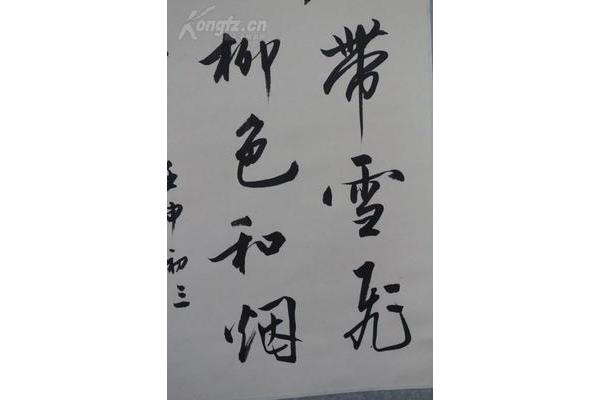 带雪飛
柳色和烟
壬申初三
Kongfz.cn